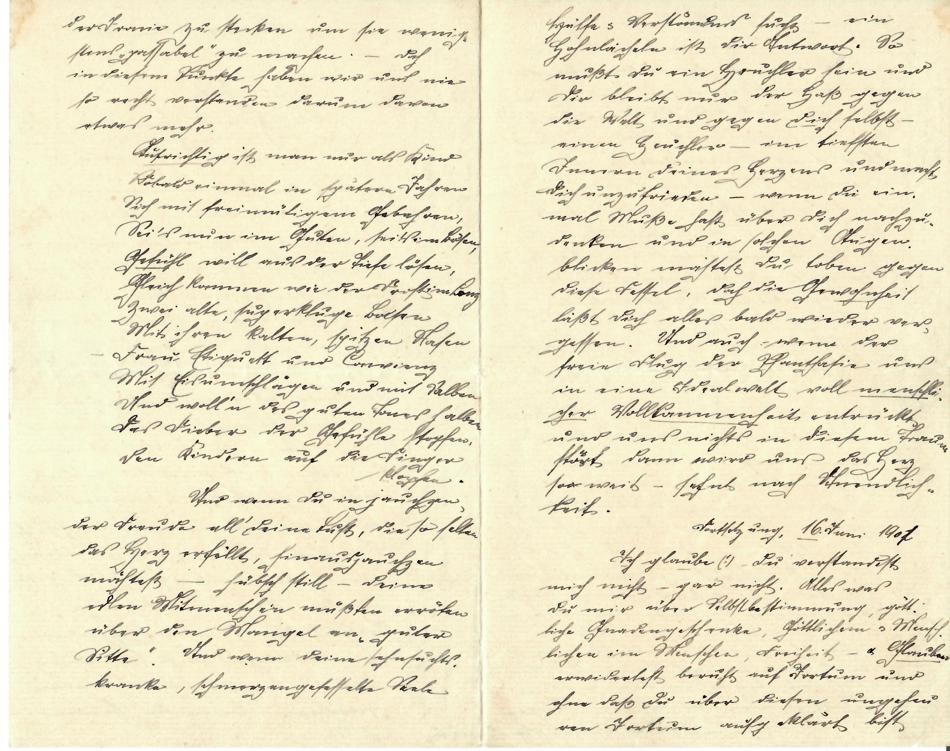 der Ironie zu stecken um sie wenig-
stens "passabel" zu machen – doch
in diesem Punkte haben wir uns nie
so recht verstanden darum davon
etwas mehr.
Aufrichtig ist man nur als Kind
Sobald einmal in spätern Jahren
Sich mit freimütigem Gebahren,
Sei's nun im Guten, sei's im Bösen,
Gefühl will aus der Tiefe lösen,
Gleich kommen wie der Frost im Lenz
Zwei alte, superkluge Basen
Mit ihren kalten, spitzen Nasen
– Frau Etiquett und Convenienz
Mit Eisumschlägen und mit Salben
Und woll'n des guten Tones halben
Das Fieber der Gefühle stopfen,
Den Kindern auf die Finger
klopfen.
Und wenn Du in jauchzen-
der Freude all' deine Lust, die so selten
das Herz erfüllt, hinausjauchzen
möchtest – hübsch still – Deine
edlen Mitmenschen müßten erröten
über den Mangel an "guter
Sitte". Und wenn deine sehnsuchts-
kranke, schmerzengefesselte Seele
Hülfe & Verständnis sucht – ein
Hohnlächeln ist die Antwort. So
mußt du ein Heuchler sein und
Dir bleibt nur der Haß gegen
die Welt und gegen Dich selbst –
einen Heuchler – im tiefsten
Innern deines Herzens und macht
Dich unzufrieden – wenn du ein-
mal Muße hast über Dich nachzu-
denken und in solchen Augen-
blicken möchtest Du, toben gegen
diese Fessel, doch die Gewohnheit
läßt Dich alles bald wieder ver-
gessen. Und auch wenn der
freie Flug der Phantasie uns
in eine Idealwelt voll menschli-
cher Vollkommenheit entrückt
und uns nichts in diesem Traum
stört dann wird uns das Herz
so weit – sehnt nach Unendlich-
keit.
Fortsetzung, 16. Juni 1907
Ich glaube (!) – Du verstandest
mich nicht – gar nicht. Alles was
Du mir über Selbstbestimmung, gött-
liche Gnadengeschenke, Göttlichem & Mensch-
lichem im Menschen, Freiheit – & Glauben
erwidertest beruht auf Irrtum und
ohne daß Du über diesen ungeheu-
ren Irrtum aufgeklärt bist